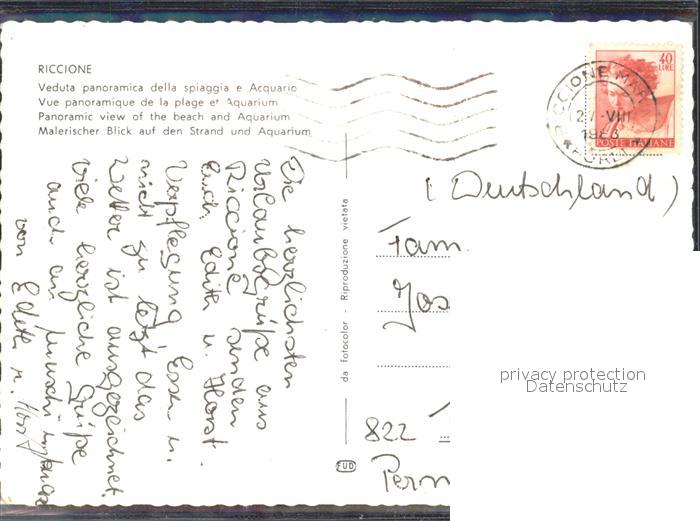 RICCIONE
Veduta panoramica della spiaggia e Acquario
Vue panoramique de la plage et Aquarium
Panoramic view of the beach and Aquarium
Malerischer Blick auf den Strand und Aquarium
40
LIRE
POSTE ITALIANE
RICCIONE
27-VIII
1963
(Deutschland)
Fam.
Jos
822
Pern
da fotocolor - Riproduzione vietata
EUD
Die herzlichsten
Urlaubsgrüße aus
Riccione senden
Euch Edith u. Horst.
Verpflegung Essen u.
nicht zu letzt das
Wetter ist ausgezeichnet.
Viele herzliche Grüße
auch an
von Edith u. Horst
privacy protection
Datenschutz